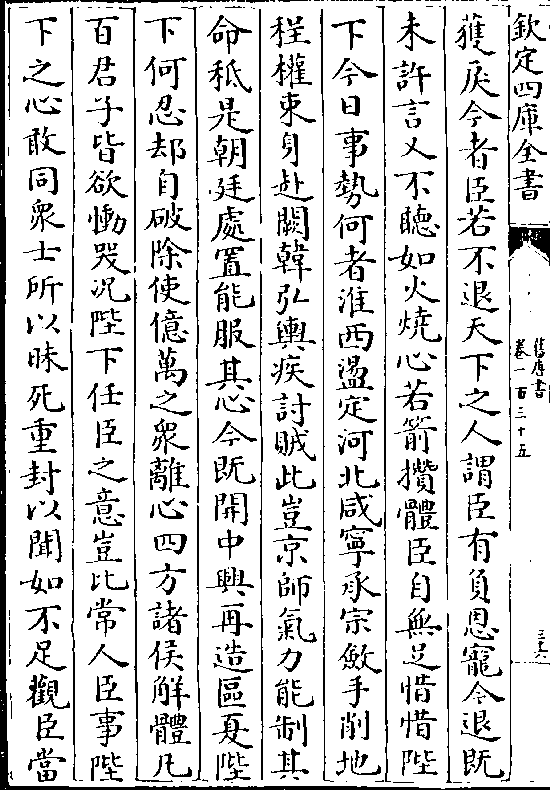 欽定四庫全書
舊唐書
卷一百三十五
三十六
獲戾今者臣若不退天下之人謂臣有負恩寵今退既
未許言又不聽如火燒心若箭攢體臣自無足惜惜陛
下今日事勢何者淮西盪定河北咸寧承宗斂手削地
程權束身赴闕韓弘輿疾討賊此豈京師氣力能制其
命秪是朝廷處置能服其心今既開中興再造區夏陛
下何忍却自破除使億萬之衆離心四方諸侯解體凡
百君子皆欲慟哭況陛下任臣之意豈比常人臣事陛
下之心敢同衆士所以昧死重封以聞如不足觀臣當